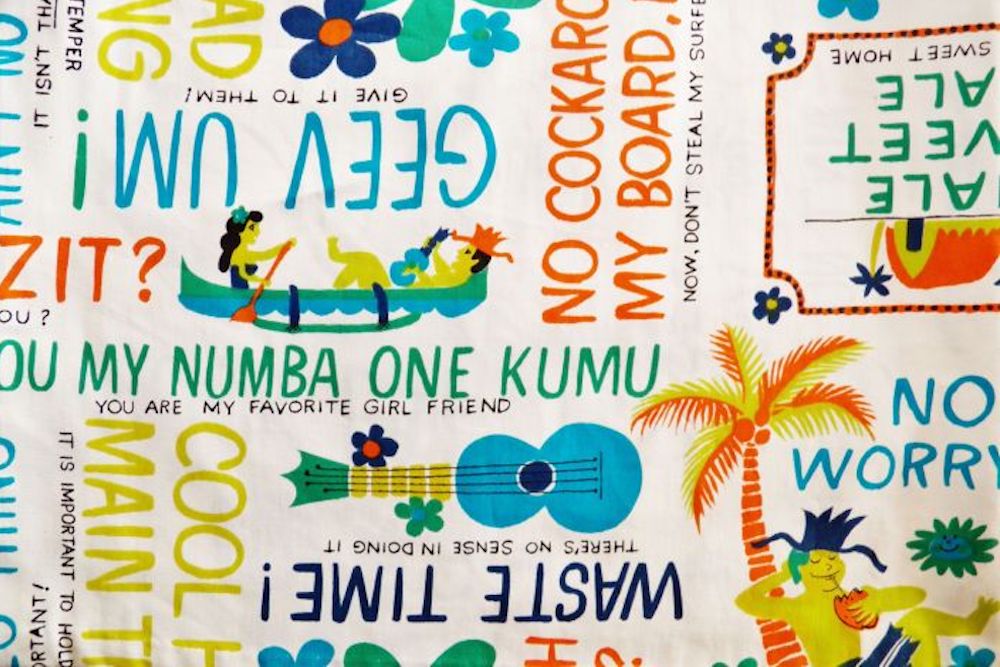 TEMPER
IT ISN'T THA
NG
AD
GIVE IT TO THEM!
GEEV UM!
ZIT?
OU?
NO COCKARO
MY BOARD,
NOW, DON'T STEAL MY SURF
SWEET HOME
ALE
VEET
HALE
OU MY NUMBA ONE KUMU
YOU ARE MY FAVORITE GIRL FRIEND
NO
WORRY
IT IS IMPORTANT TO HOLD
ORTANT!
MAIN T
COOL H
THERE'S NO SENSE IN DOING IT
WASTE TIME!